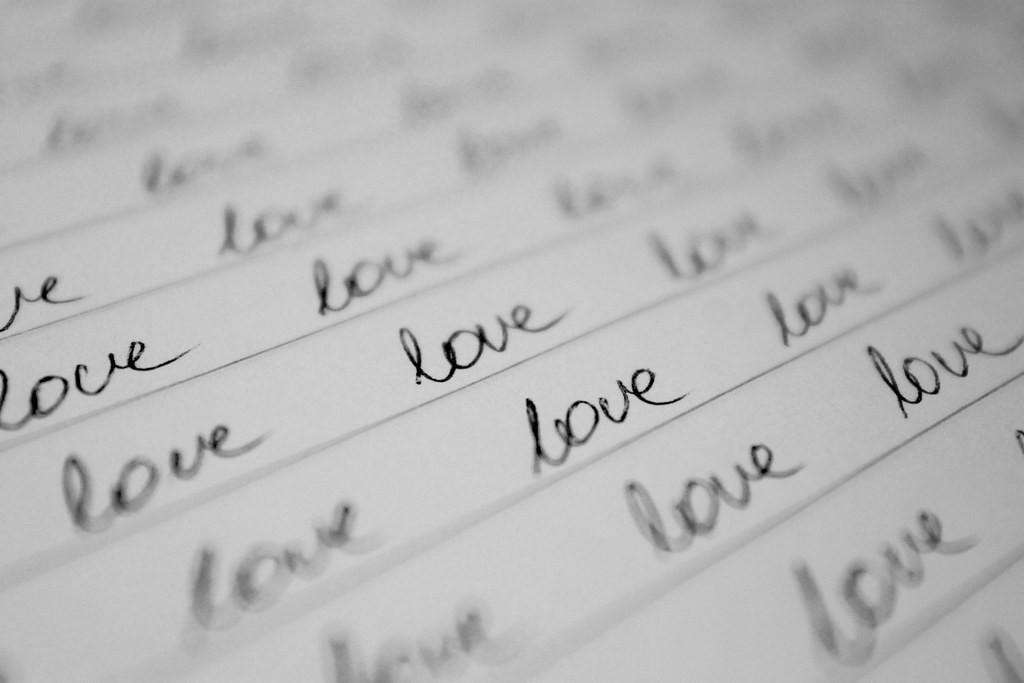 love
ve love love
love love love
love love love love
love love love love
love love love
love